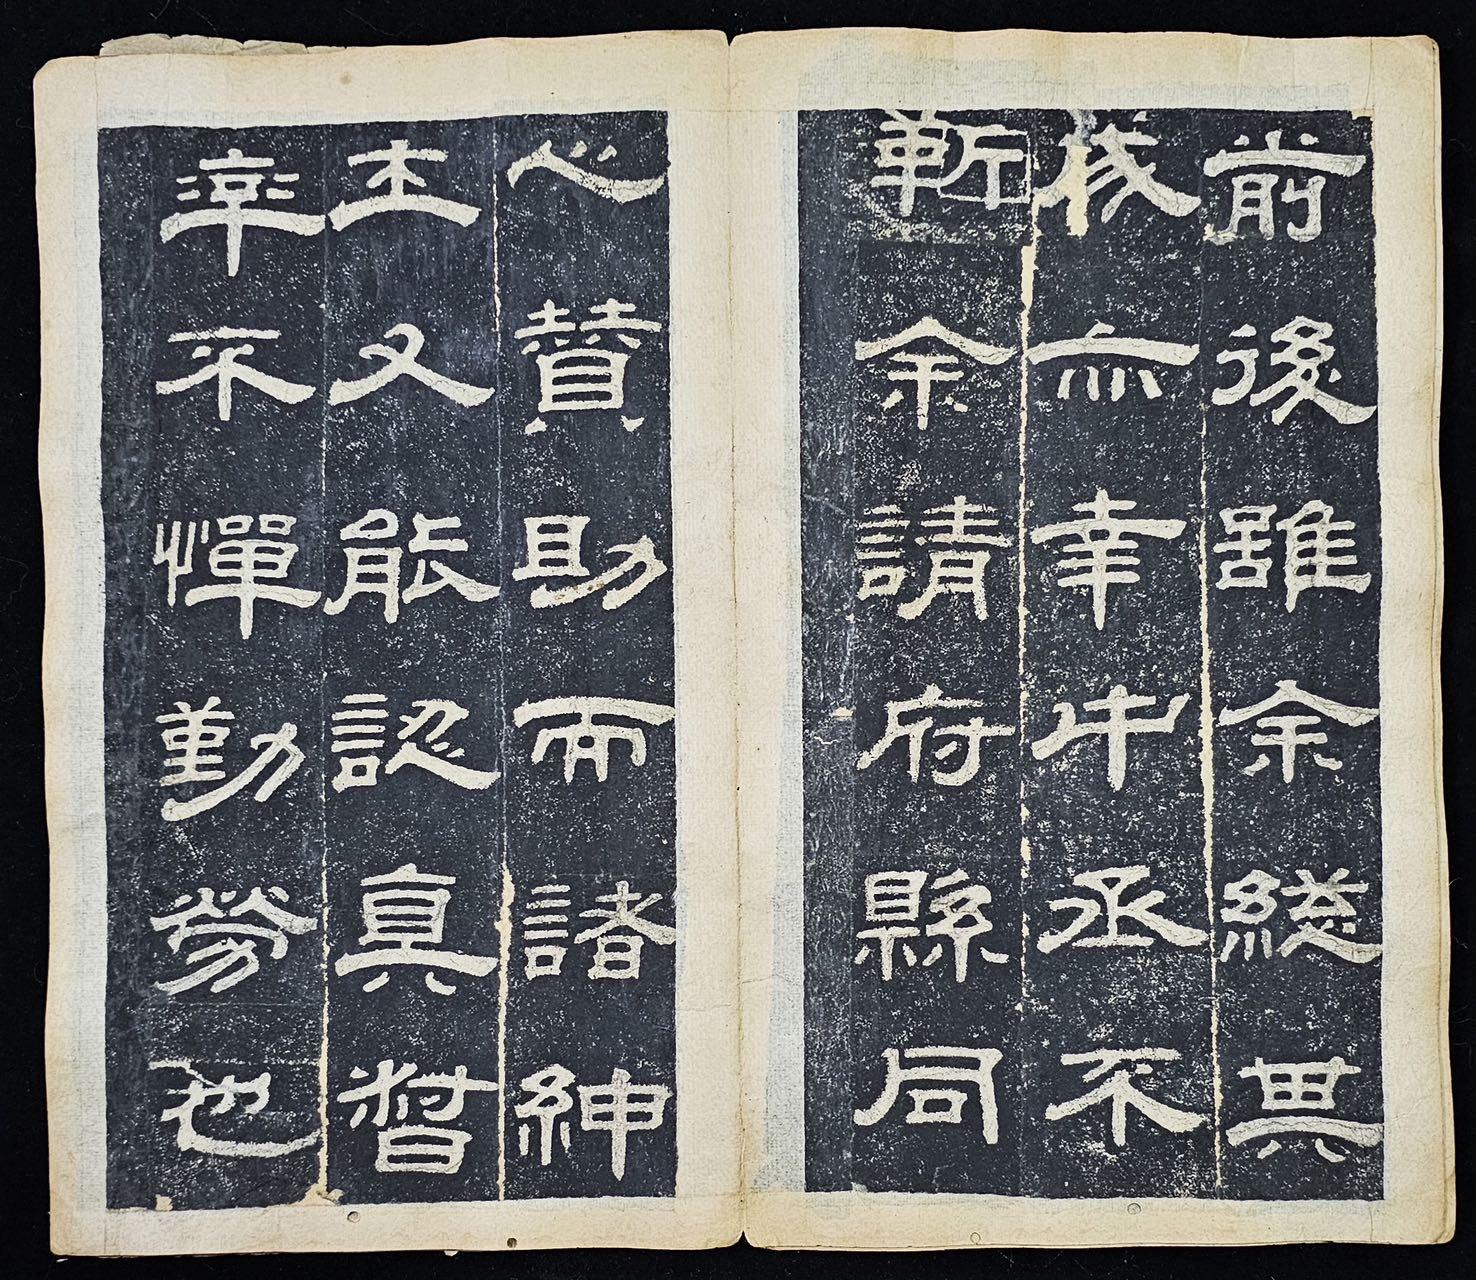 前後雖余總其
成亦幸中丞不
靳余請府縣同
心贊助而諸紳
士又能認真督
率不憚勤勞也